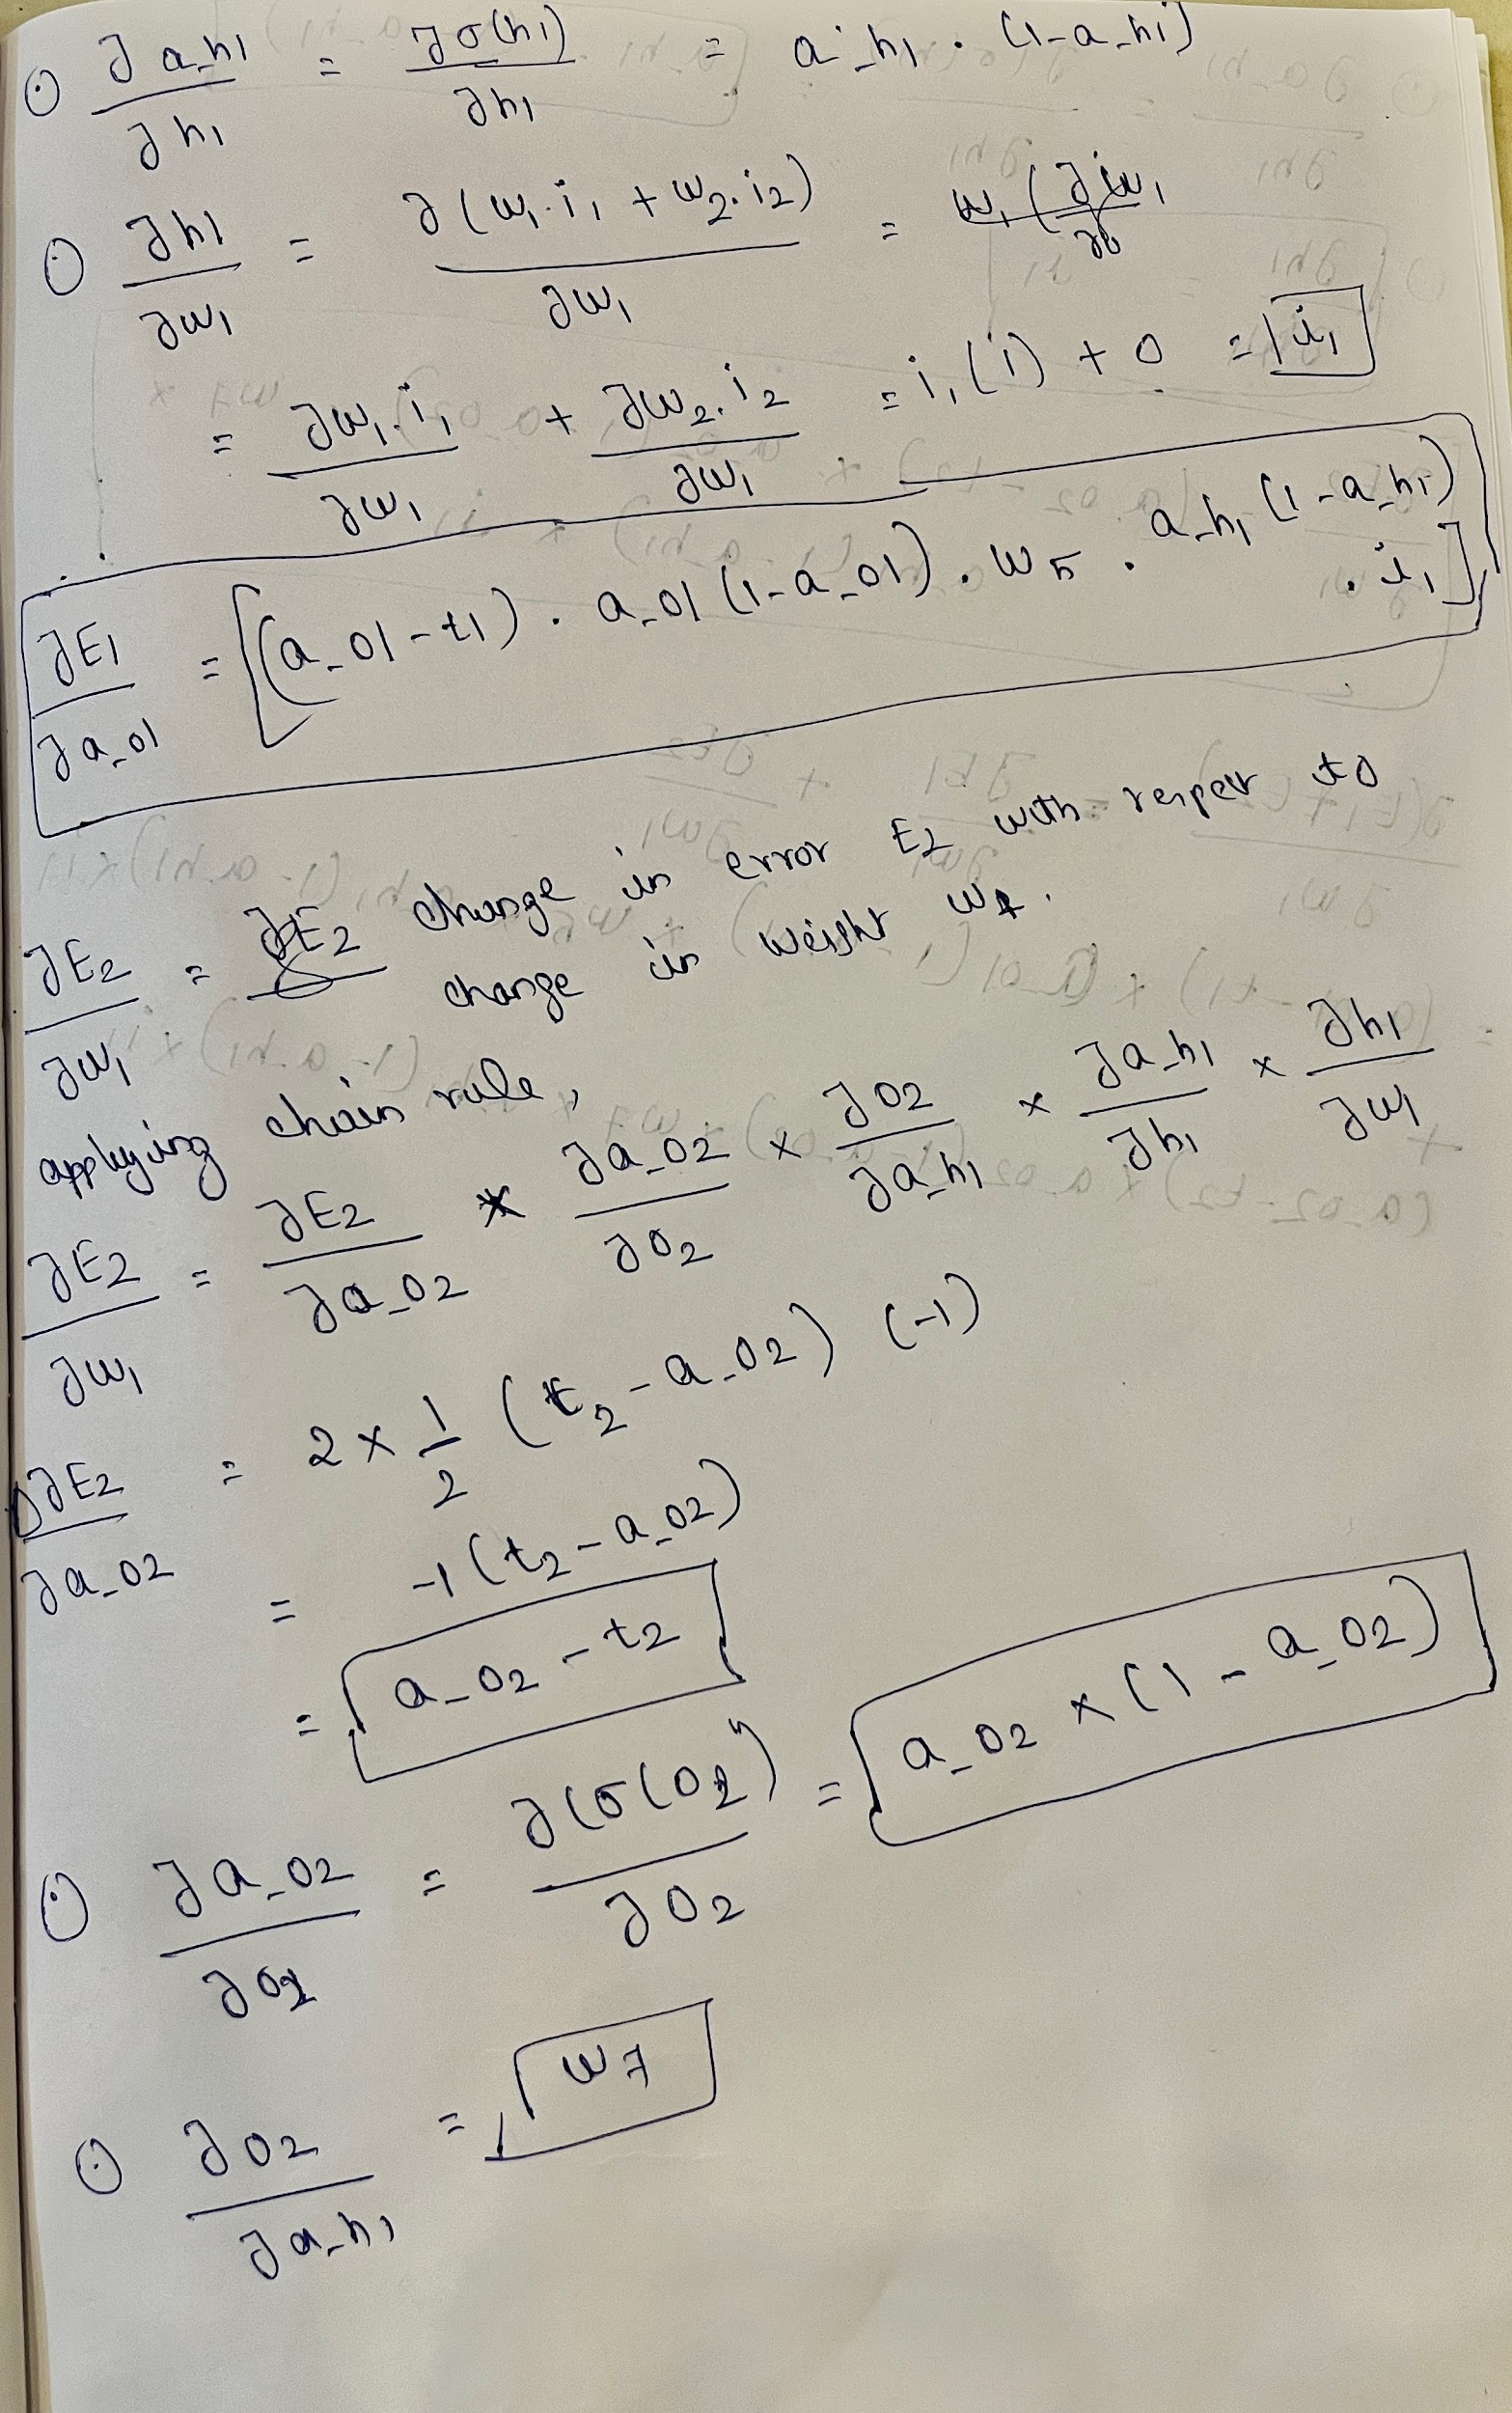 ⊙ ∂a_h1/∂h1 = ∂σ(h1)/∂h1 = a_h1 . (1-a_h1)
⊙ ∂h1/∂w1 = ∂(w1.i1 + w2.i2)/∂w1 =
= ∂w1.i1/∂w1 + ∂w2.i2/∂w1 = i1(1) + 0 = i1
∂E1/∂a_01 = [(a_01-t1) . a_01 (1-a_01) . w5 . a_h1 (1-a_h1) . i1]
∂E2/∂w1 = change in error E2 with respect to
change in weight
applying chain rule,
∂E2/∂w1 = ∂E2/∂a_02 * ∂a_02/∂02 × ∂02/∂a_h1 × ∂a_h1/∂h1 × ∂h1/∂w1
⊙ ∂E2/∂a_02 = 2 × 1/2 (t2 - a_02) (-1)
= -1 (t2 - a_02)
= a_02 - t2
⊙ ∂a_02/∂02 = ∂(σ(02))/∂02 = a_02 × (1 - a_02)
⊙ ∂02/∂a_h1 = w7